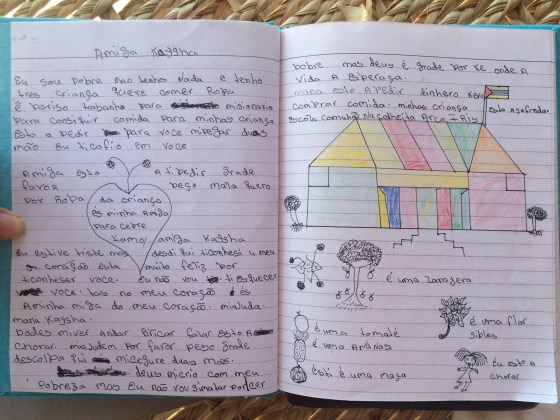 Amiga Kaysha
Eu sou Pobre nao tenho Nada e tenho
tres criança quere comer Ropa
é Poriso trabanho para misionario
Para consiguir comida Para minhas criança
Esto a pedir para voce mipegar duas
mão Eu ticofio em voce
Amiga esto A tipedir grada
favor peço mana quero
por Ropa da criança
és minha Amiga
para cebre
tiamo amiga Kaysha
Eu estive triste mas desdi qui ticonhesi u meu
coração esta muito feliz por
ticonheser voce. Eu nao vou ti esquecer
voce. tas no meu coração és
Aminha miga do meu coração. miaJuda:
mana Kaysha:
Podes miver andar Bricar falar esto A
chorar. miaJudem Por favor peso grade
descolpa qui micegure duas mos.
deus micrio com meu
Pobreza mas Eu não vou simatar por cer
Pobre mas deus é grade Por ke onde A
vida A Esperaça.
mana esto A Pedir dinhero Para
comprar comida. minhas criança esto Asofreda.
Escola comunitá na colheita Arco-Iris
é uma laragera
é uma tomate
é uma Ananas
Esti é uma maça
é uma flor
siblas
é Eu esto A
chorar